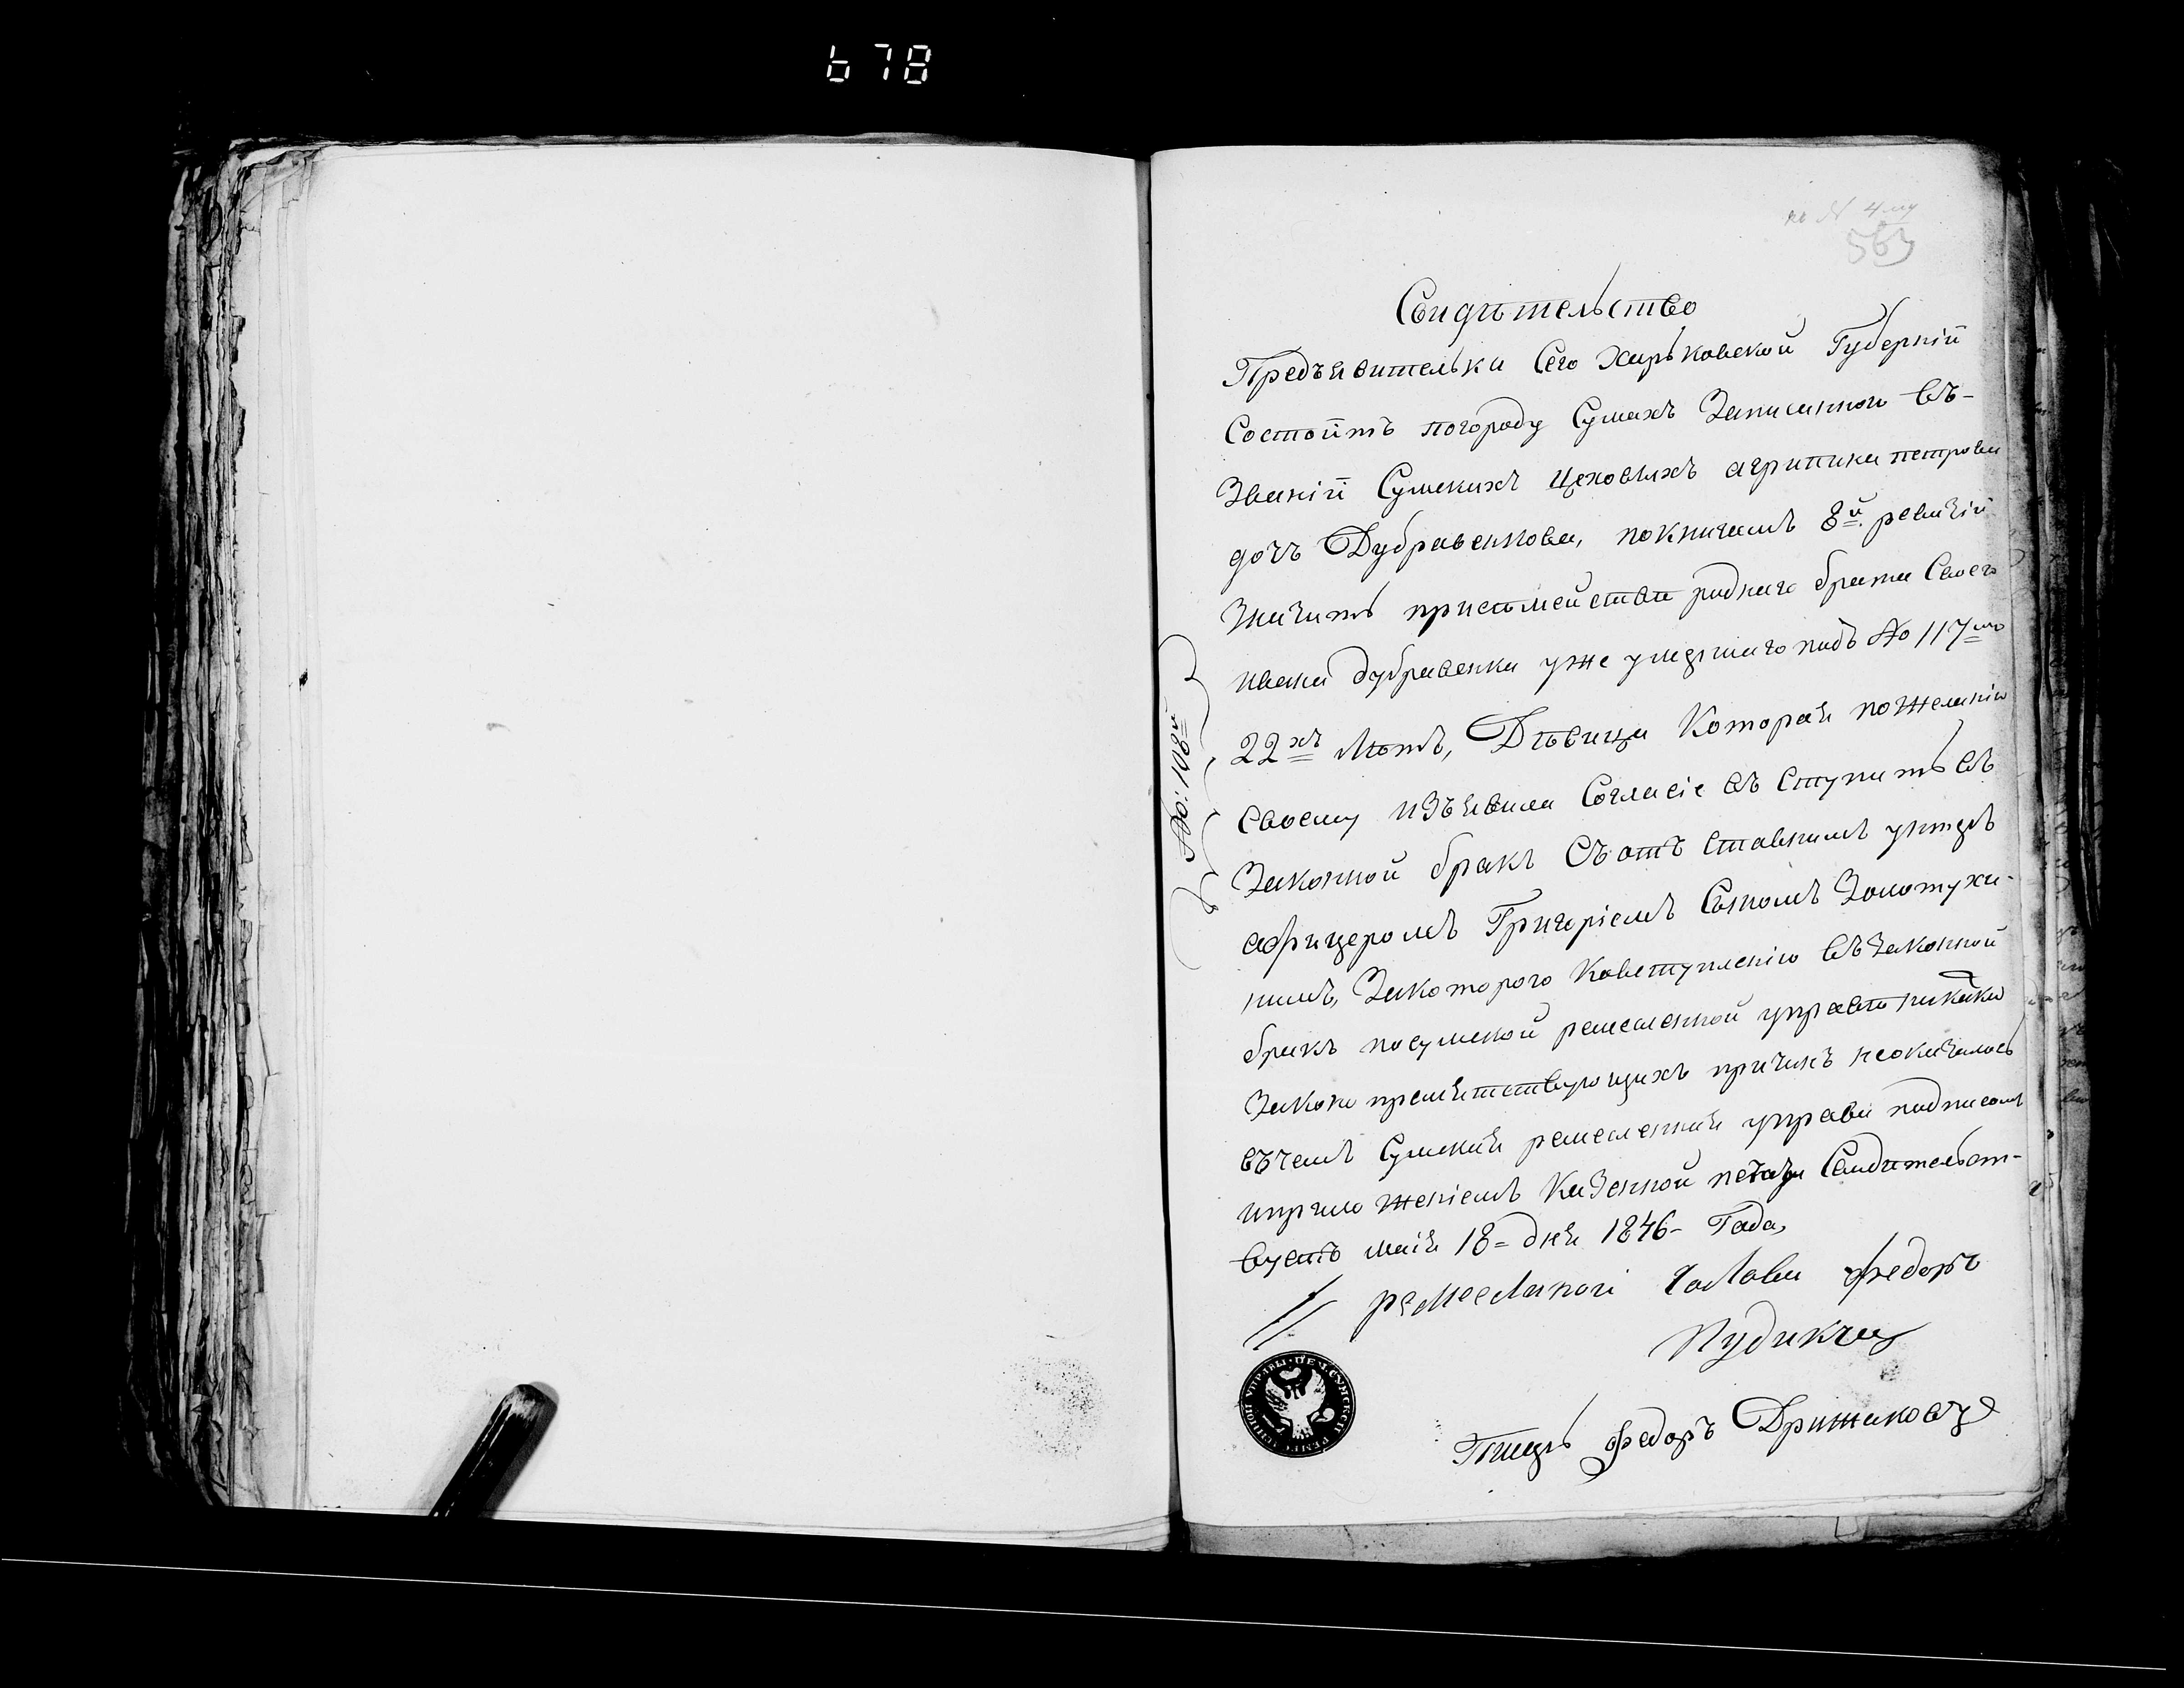 678
къ № 4му
563
Свидѣтельство
Предъявителька Сего Харьковской Губерніи
Состоитъ погороду Сумахъ Записанною въ-
Званіи Сумскихъ цеховыхъ агрипина петрова
дочь Дубравенкова, покнигамъ 8й ревизіи
Значитъ присѣмействѣ роднаго брата Своего
ивана дубравенка уже умершаго подъ №117мъ
22хъ Лѣтъ, Дѣвица Которая пожеланію
своему изъявила Согласіе въ ступить въ
Законной бракъ Съ отъ ставнымъ унтеръ
афицеромъ Григоріемъ Сыномъ Золотухи-
нымъ, Закоторого Ковступленію въ законной
бракъ посумской ремесленной управѣ никаки
Законо препятствующихъ причинъ неоказалось
въчемъ Сумская ремесленная управа подписомъ
иприло женіемъ Казенной печати Свидѣтельст-
вуетъ маія 18= дня 1846- Года,
ремеслиной Голова федоръ
Писецъ федоръ
№: 108й
ПЕЧ. СУМСКОЙ РЕМЕСЛЕННОЙ УПРАВЫ